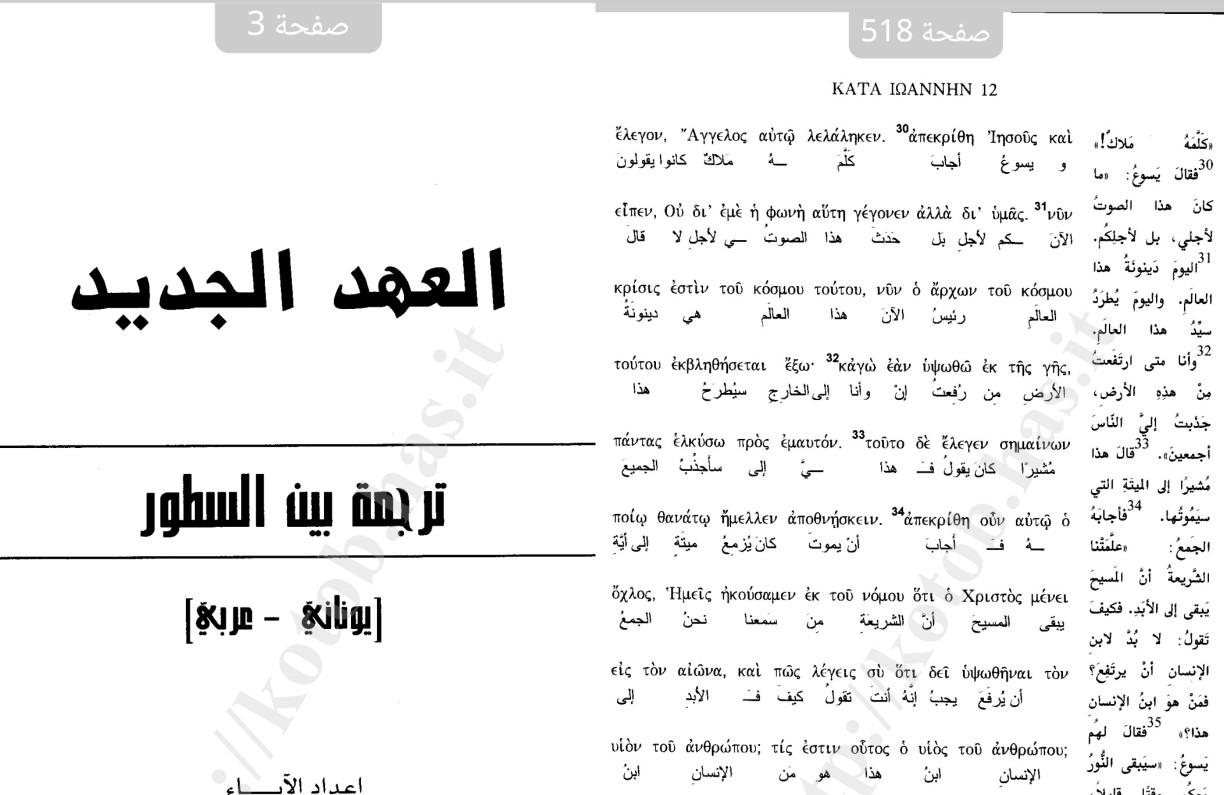 صفحة 3
العهد الجديد
ترجمة بين السطور
[يوناني - عربي]
اعداد الآبـــاء
صفحة 518
ΚΑΤΑ ΙΩΑΝΝΗΝ 12
ἔλεγον, Ἄγγελος αὐτῷ λελάληκεν. 30ἀπεκρίθη Ἰησοῦς καὶ
و يسوعُ أجابَ كلَّمَ ـهُ مَلاكٌ كانوا يقولونَ
εἶπεν, Οὐ δι’ ἐμὲ ἡ φωνὴ αὕτη γέγονεν ἀλλὰ δι’ ὑμᾶς. 31νῦν
الآنَ ـكم لأجلِ بل حَدَثَ هذا الصوتُ ـي لأجلِ لا قالَ
κρίσις ἐστὶν τοῦ κόσμου τούτου, νῦν ὁ ἄρχων τοῦ κόσμου
العالَمِ رئيسُ الآنَ هذا العالَمِ هي دينونَةُ
τούτου ἐκβληθήσεται ἔξω· 32κἀγὼ ἐὰν ὑψωθῶ ἐκ τῆς γῆς,
الأرضِ من رُفِعتُ إنْ وأنا إلى الخارجِ سيُطرَحُ هذا
πάντας ἑλκύσω πρὸς ἐμαυτόν. 33τοῦτο δὲ ἔλεγεν σημαίνων
مُشيرًا كانَ يقولُ فـَ هذا ـيَّ إلى سأجذُبُ الجميعَ
ποίῳ θανάτῳ ἤμελλεν ἀποθνῄσκειν. 34ἀπεκρίθη οὖν αὐτῷ ὁ
ـهُ فـَ أجابَ أنْ يموتَ كانَ يُزمِعُ ميتَةٍ إلى أيَّةِ
ὄχλος, Ἡμεῖς ἠκούσαμεν ἐκ τοῦ νόμου ὅτι ὁ Χριστὸς μένει
يبقى المسيحَ أنَّ الشريعَةِ مِنَ سَمعنا نحنُ الجمعُ
εἰς τὸν αἰῶνα, καὶ πῶς λέγεις σὺ ὅτι δεῖ ὑψωθῆναι τὸν
أن يُرفَعَ يجبُ إنَّهُ أنتَ تقولُ كيفَ فـَ الأبدِ إلى
υἱὸν τοῦ ἀνθρώπου; τίς ἐστιν οὗτος ὁ υἱὸς τοῦ ἀνθρώπου;
الإنسانِ ابنُ هذا هو مَن الإنسانِ ابنُ
«كَلَّمَهُ مَلاكٌ!»
30فقالَ يَسوعُ: «ما
كانَ هذا الصوتُ
لأجلي، بل لأجلِكُم.
31اليومَ دَينونَةُ هذا
العالَمِ. واليومَ يُطرَدُ
سيِّدُ هذا العالَمِ.
32وأنا متى ارتَفَعتُ
مِنْ هذِهِ الأرضِ،
جَذَبتُ إليَّ النَّاسَ
أجمعينَ». 33قالَ هذا
مُشيرًا إلى الميتَةِ التي
سيَمُوتُها. 34فأجابَهُ
الجَمعُ: «علَّمَتْنا
الشَّريعةُ أنَّ المَسيحَ
يَبقى إلى الأبَدِ. فكيفَ
تَقولُ: لا بُدَّ لابنِ
الإنسانِ أنْ يرتَفِعَ؟
فمَنْ هوَ ابنُ الإنسانِ
هذا؟» 35فقالَ لهُم
يَسوعُ: «سيَبقى النُّورُ
://kotob.has.it